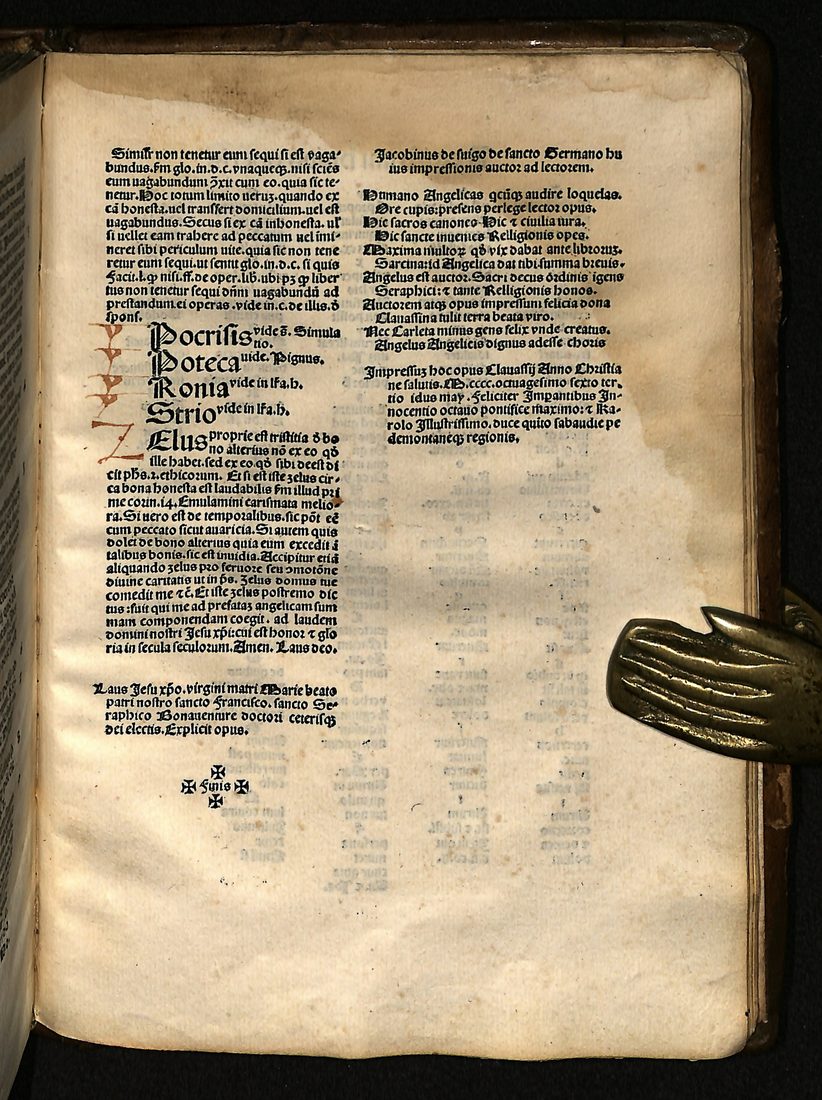 Simiłr non tenetur eum sequi si est vaga-
bundus. ẜm glo. in. d. c. vnaqueqꝫ. nisi sciēs
eum uagabundum ꝯ̄xit cum eo. quia sic te-
netur. Hoc totum limito ueruꝫ. quando ex
cā honesta. uel transfert domicilium. uel est
uagabundus. Secus si ex cā inhonesta. ul̄
si uellet eam trahere ad peccatum uel īmi-
neret sibi periculum uite. quia sic non tene
retur eum sequi. ut sentit glo. in. d. c. si quis
Facit. l. ꝙ nisi. ff. de oper. lib. ubi pꝫ ꝙ liber
tus non tenetur sequi dn̄m uagabundū ad
prestandum. ei operas. vide in. c. de illis. ð
spons.
Pocrisis vide s̄. Simula
tio.
Poteca uide. Pignus.
Ronia vide in lr̄a. h.
Strio vide in lr̄a. h.
Zelus proprie est tristitia ð bo
no alterius nō ex eo qð
ille habet. sed ex eo. qð sibi deest di
cit ph̄s. 2. ethicorum. Et si est iste zelus cir-
ca bona honesta est laudabilis ẜm illud pri
me corin. 14. Emulamini carismata melio-
ra. Si uero est de temporalibus. sic pōt eē
cum peccato sicut auaricia. Si autem quis
dolet de bono alterius quia eum excedit ī
talibus bonis. sic est inuidia. Accipitur etiā
aliquando zelus pro feruore seu ꝯmotōne
diuine caritatis ut in ps̄. Zelus domus tue
comedit me ⁊ c̄. Et iste zelus postremo dic
tus: fuit qui me ad prefataꝫ angelicam sum
mam componendam coegit. ad laudem
domini nostri Jesu xp̄i: cui est honor ⁊ glo
ria in secula seculorum. Amen. Laus deo.
Laus Jesu xp̄o. virgini matri Marie beato
patri nostro sancto Francisco. sancto Se-
raphico Bonauenture doctori ceterisqꝫ
dei electis. Explicit opus.
✠
✠ Finis ✠
✠
Jacobinus de suigo de sancto Germano hu
ius impressionis auctor ad lectorem.
Humano Angelicas qcūqꝫ audire loquelas.
Ore cupis: presens perlege lector opus.
Hic sacros canones Hic ⁊ ciuilia iura.
Hic sancte inuenies Relligionis opes.
Maxima multoꝝ qð vix dabat ante libroruꝫ.
Sarcina: id Angelica dat tibi summa breuis.
Angelus est auctor. Sacri decus ordinis īgens
Seraphici: ⁊ tante Relligionis honos.
Auctorem atqꝫ opus impressum felicia dona
Clauassina tulit terra beata viro.
Nec Carleta minus gens felix vnde creatus.
Angelus Angelicis dignus adesse choris
Impressuꝫ hoc opus Clauassij Anno Christia
ne salutis. M. cccc. octuagesimo sexto ter.
tio idus may. Feliciter Imꝑantibus In-
nocentio octauo pontifice maximo: ⁊ Ka-
rolo Jllustrissimo. duce quito sabaudie pe
demontaneqꝫ regionis.